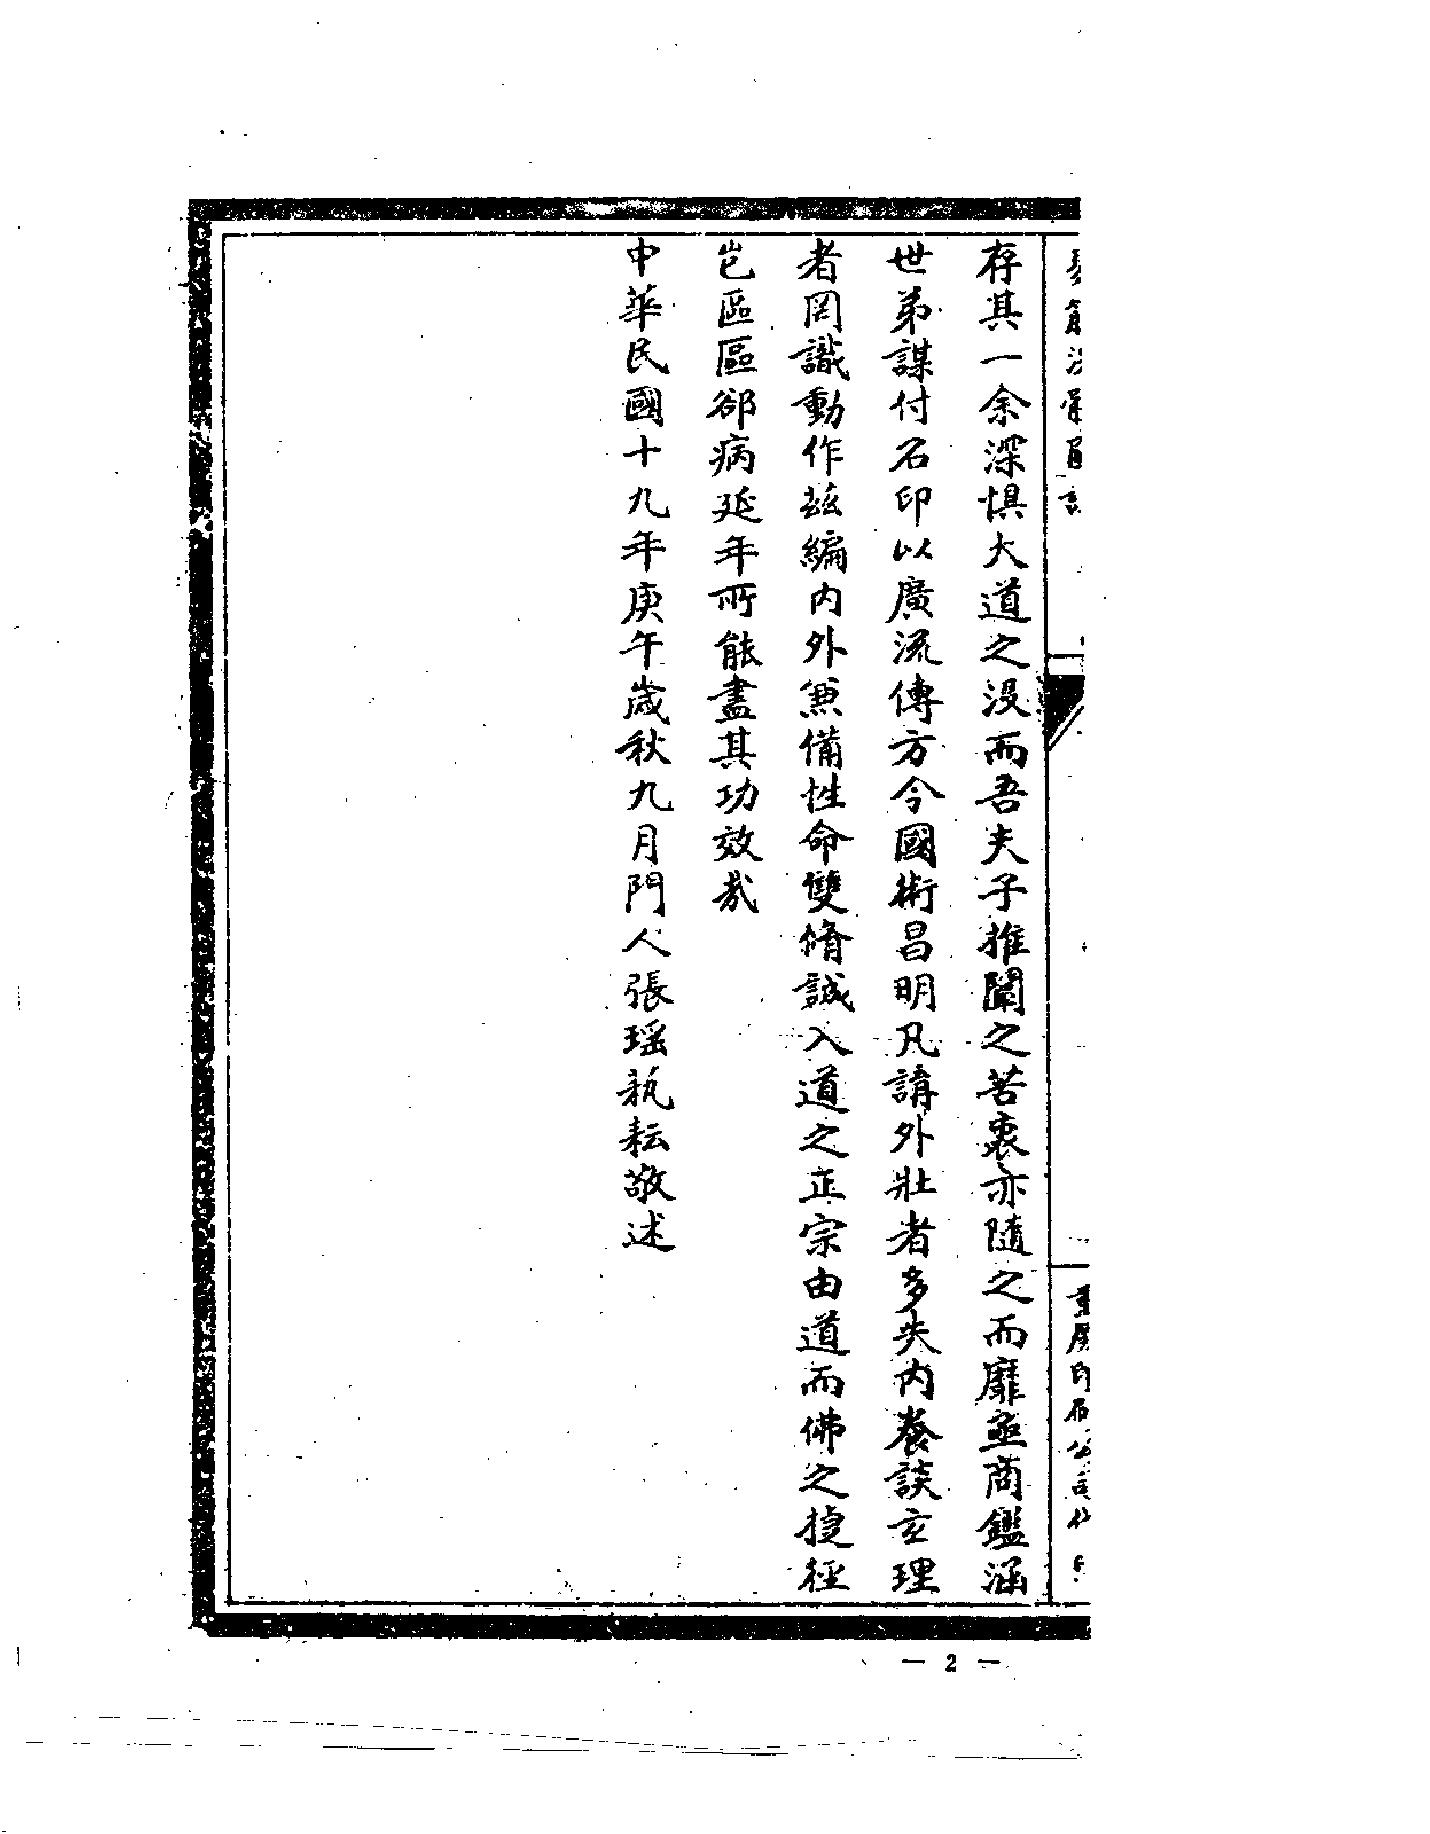 存其一余深惧大道之没而吾夫子推闡之苦衷亦隨之而靡亟商鑑涵
世弟謀付石印以廣流傳方今國術昌明凡講外壯者多失内養談玄理
者罔識動作茲編内外兼備性命雙脩誠入道之正宗由道而佛之捷徑
豈區區郤病延年所能盡其功效哉
中華民國十九年庚午歲秋九月門人張瑶執耘敬述
— 2 —